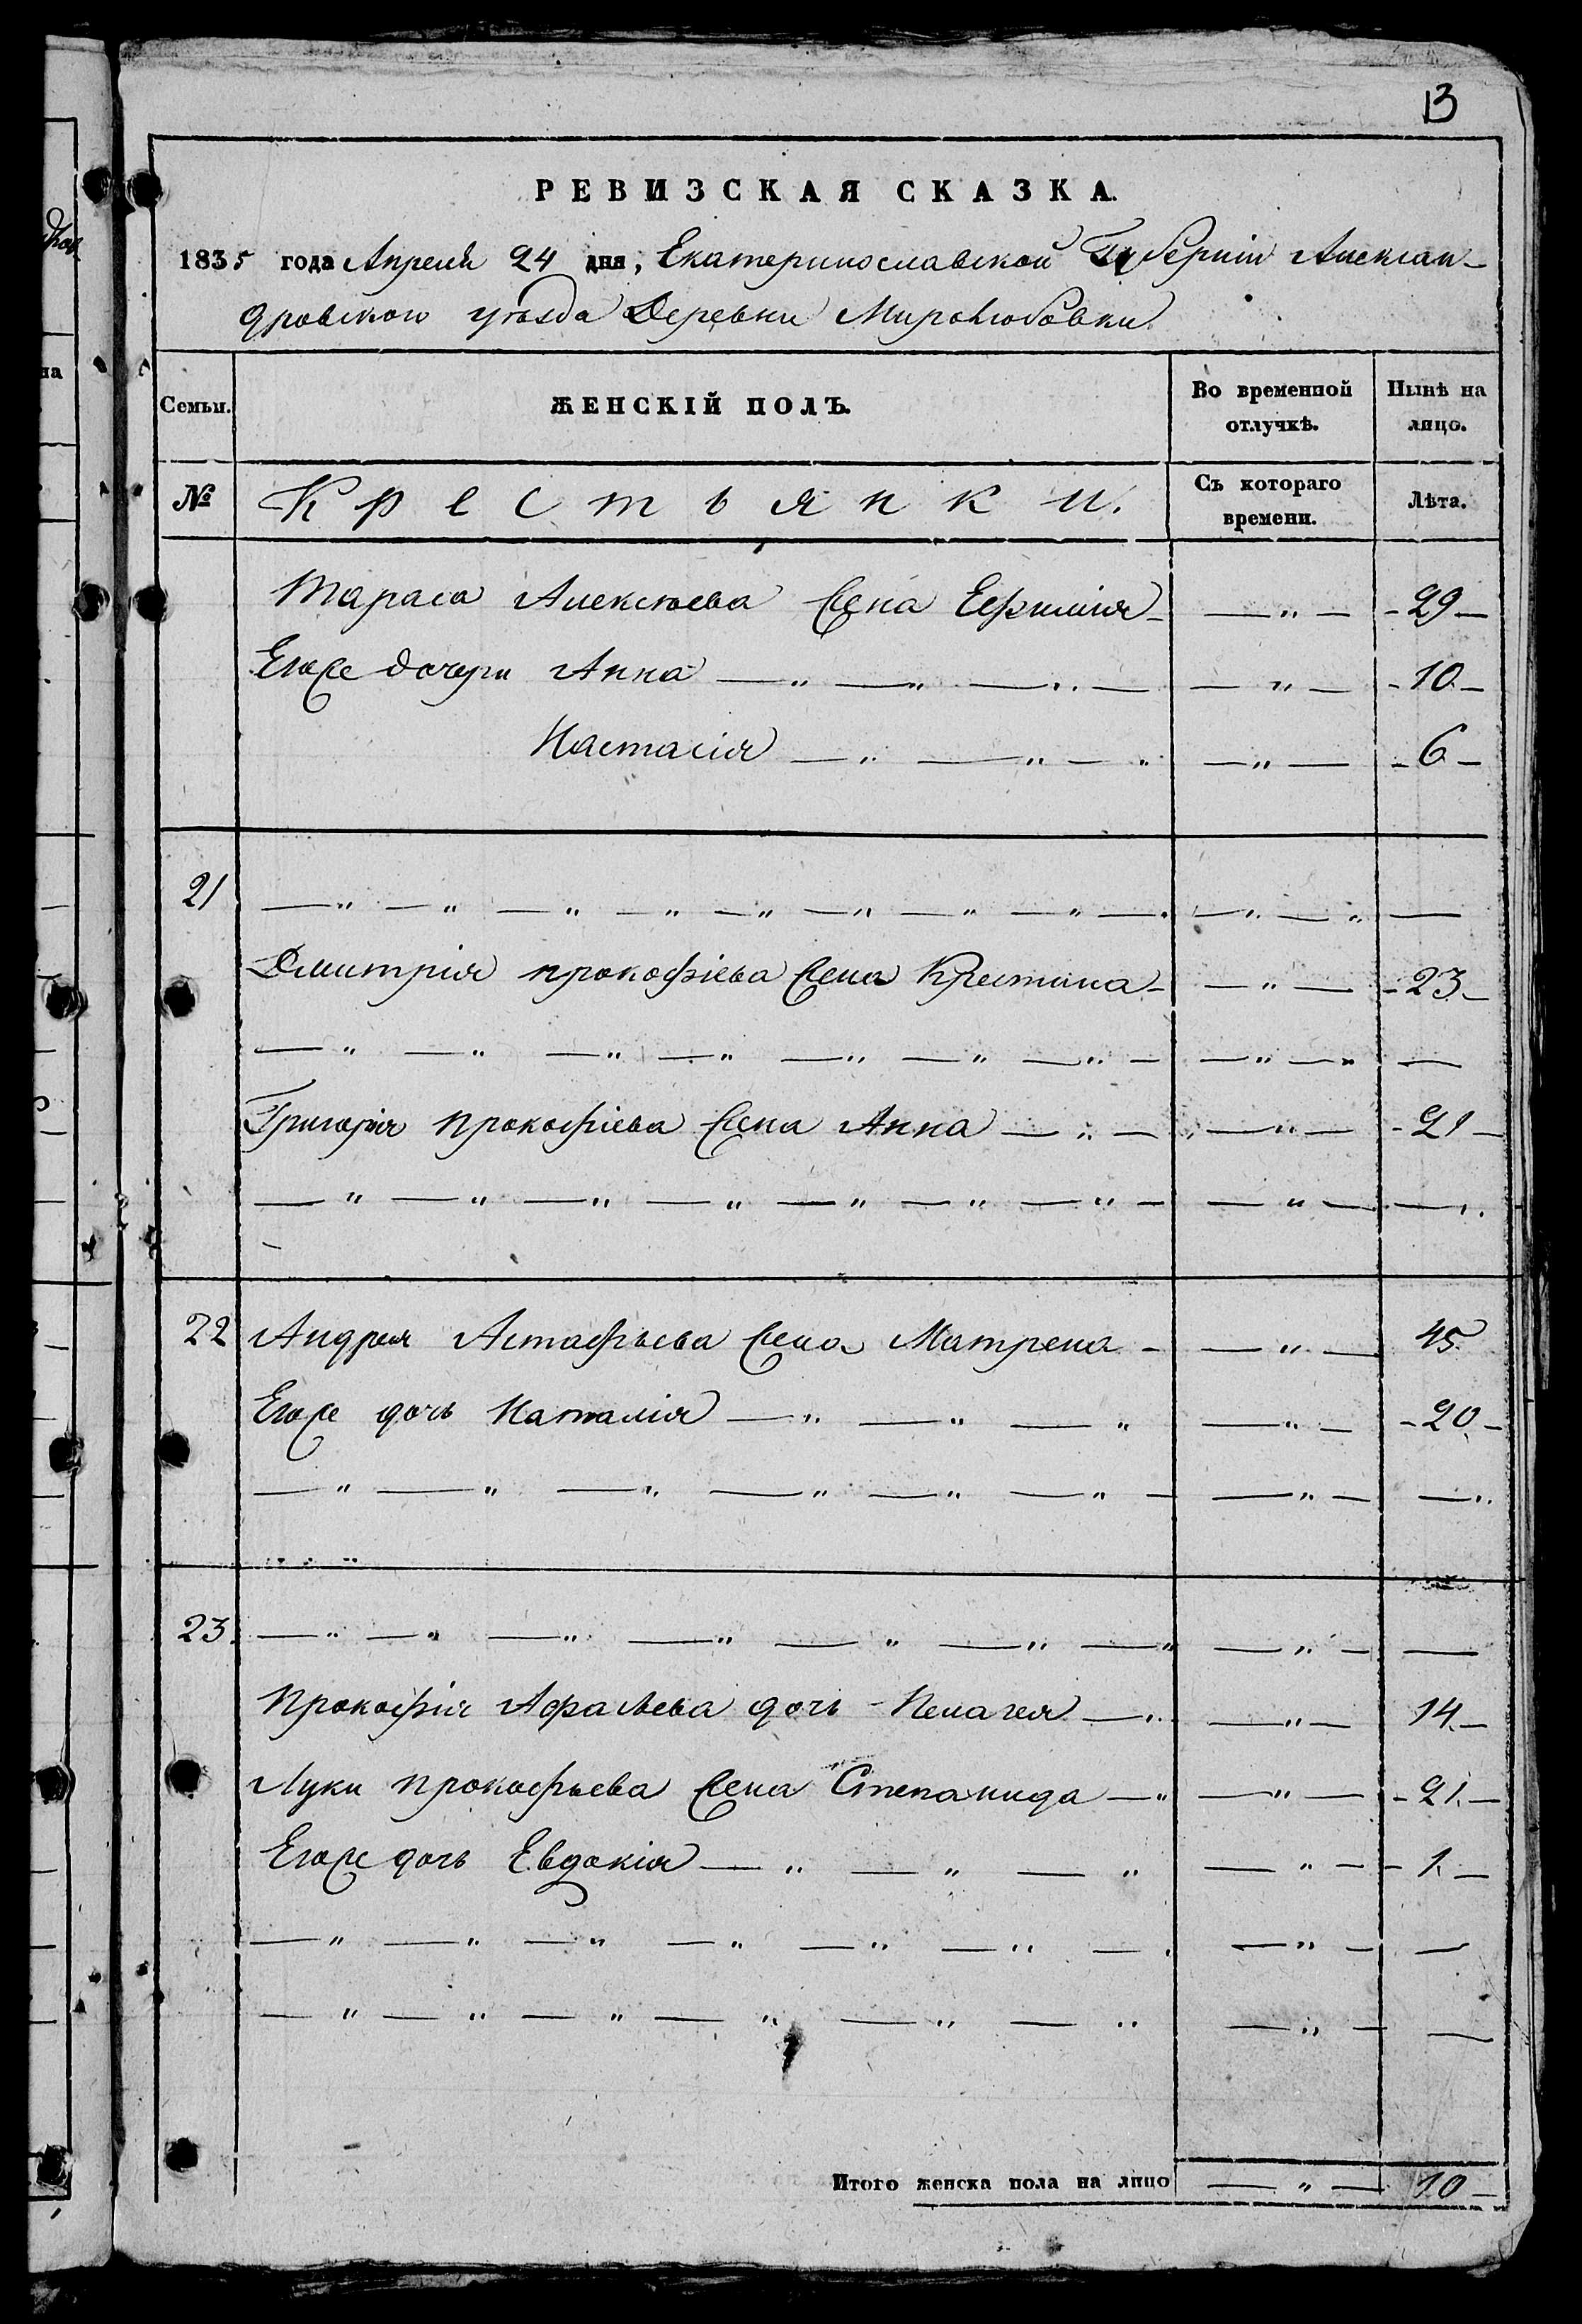 13
РЕВИЗСКАЯ СКАЗКА.
1835 года Апреля 24 дня, Екатеринославской Губернии Алексан-
дровского уѣзда Деревни Миролюбовки
Семьи. ЖЕНСКІЙ ПОЛЪ. Во временной отлучкѣ. Нынѣ на лицо.
№ Крестьянки. Съ котораго времени. Лѣта.
Тараса Алексѣева жена Ефимия — " — - 29 —
Егоже дочери Анна — " — " — " — — " — - 10 —
Настасія — " — " — " — " — - 6 —
21 — " — " — " — " — " — " — " — " — — " — " —
Дмитрія прокофіева жена Крестина - — " — - 23 —
— " — " — " — " — " — " — " — — " — " —
Григорія прокофіева жена Анна — " — — " — - 21 —
— " — " — " — " — " — " — " — — " — — "
22 Андрея Астафьева жена Матрена - — " — 45
Егоже дочь Наталія — " — " — " — " — - 20 —
— " — " — " — " — " — " — — " — — "
23. — " — " — " — " — " — " — " — " — —
Прокофія дочь - Пелагея — " — " — 14 —
Луки прокофьева жена Степанида — " — " — - 21 —
Егоже дочь Евдокія — " — " — " — " — - 1 —
— " — " — " — " — " — " — — " — —
— " — " — " — " — " — " — " — —
Итого женска пола на лицо — " — 10 —